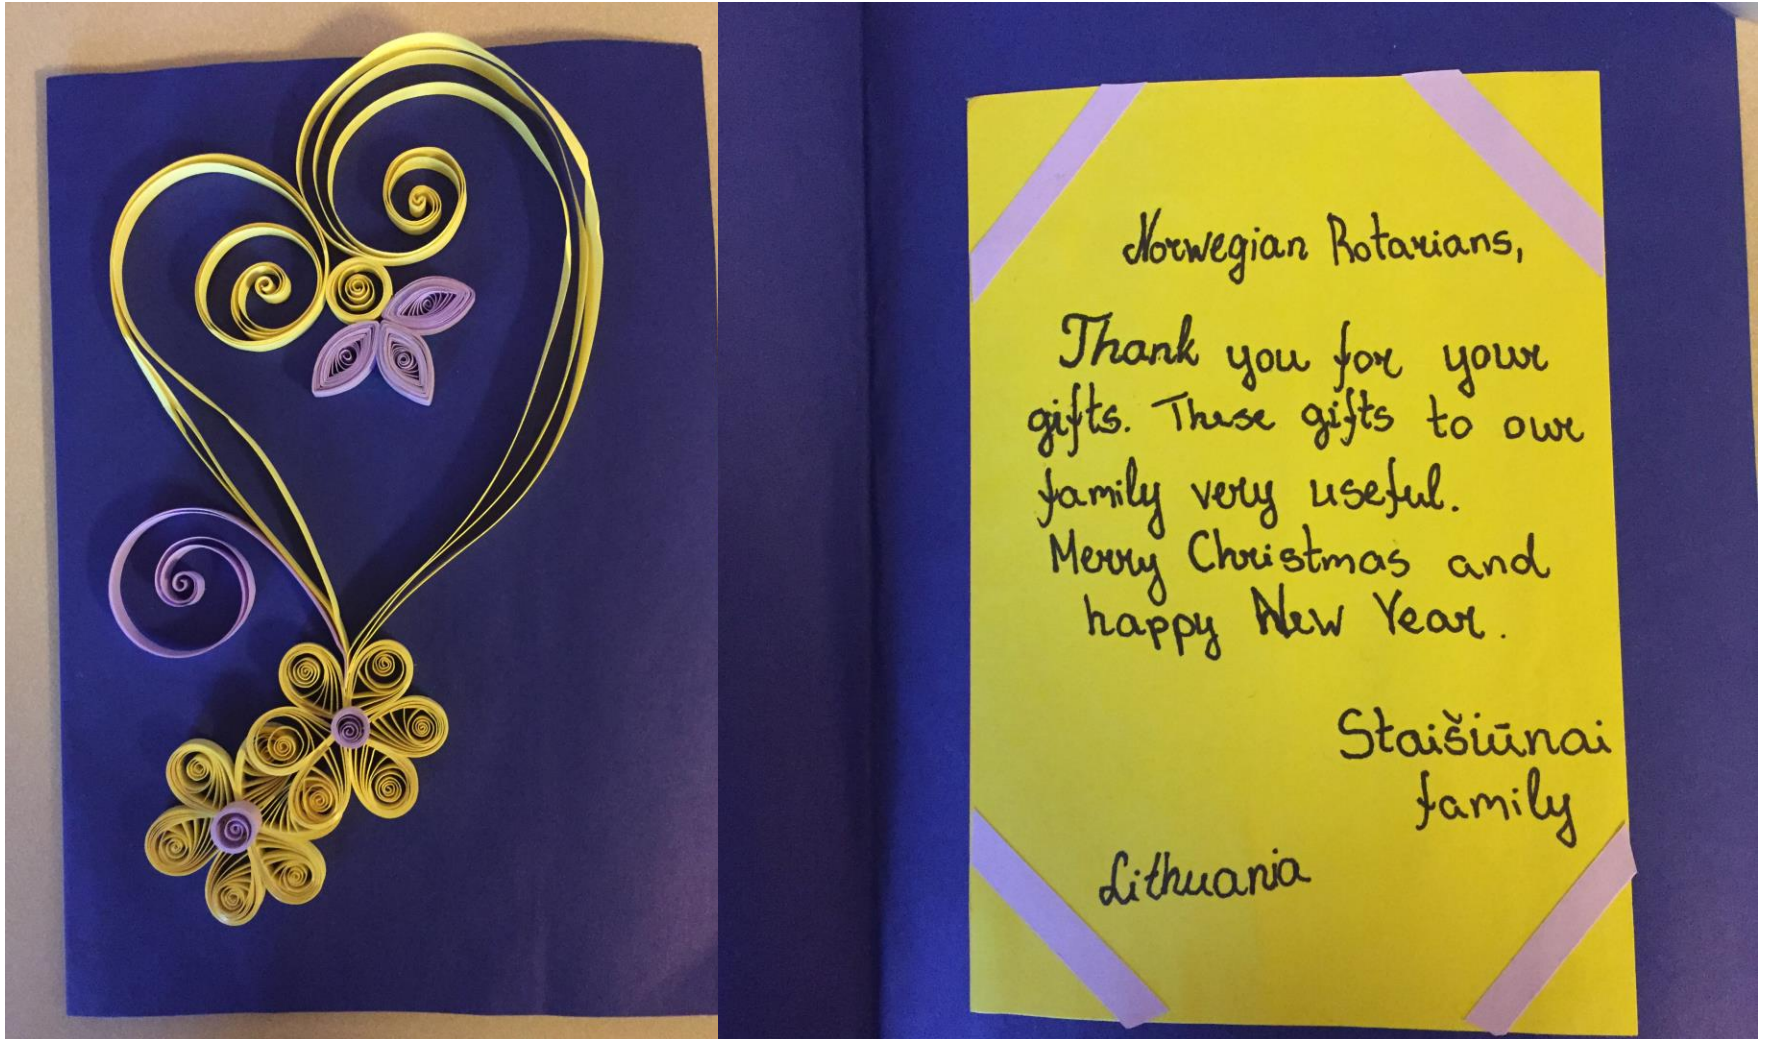 Norwegian Rotarians,
Thank you for your
gifts. These gifts to our
family very useful.
Merry Christmas and
happy New Year.
Staišiūnai
family
Lithuania